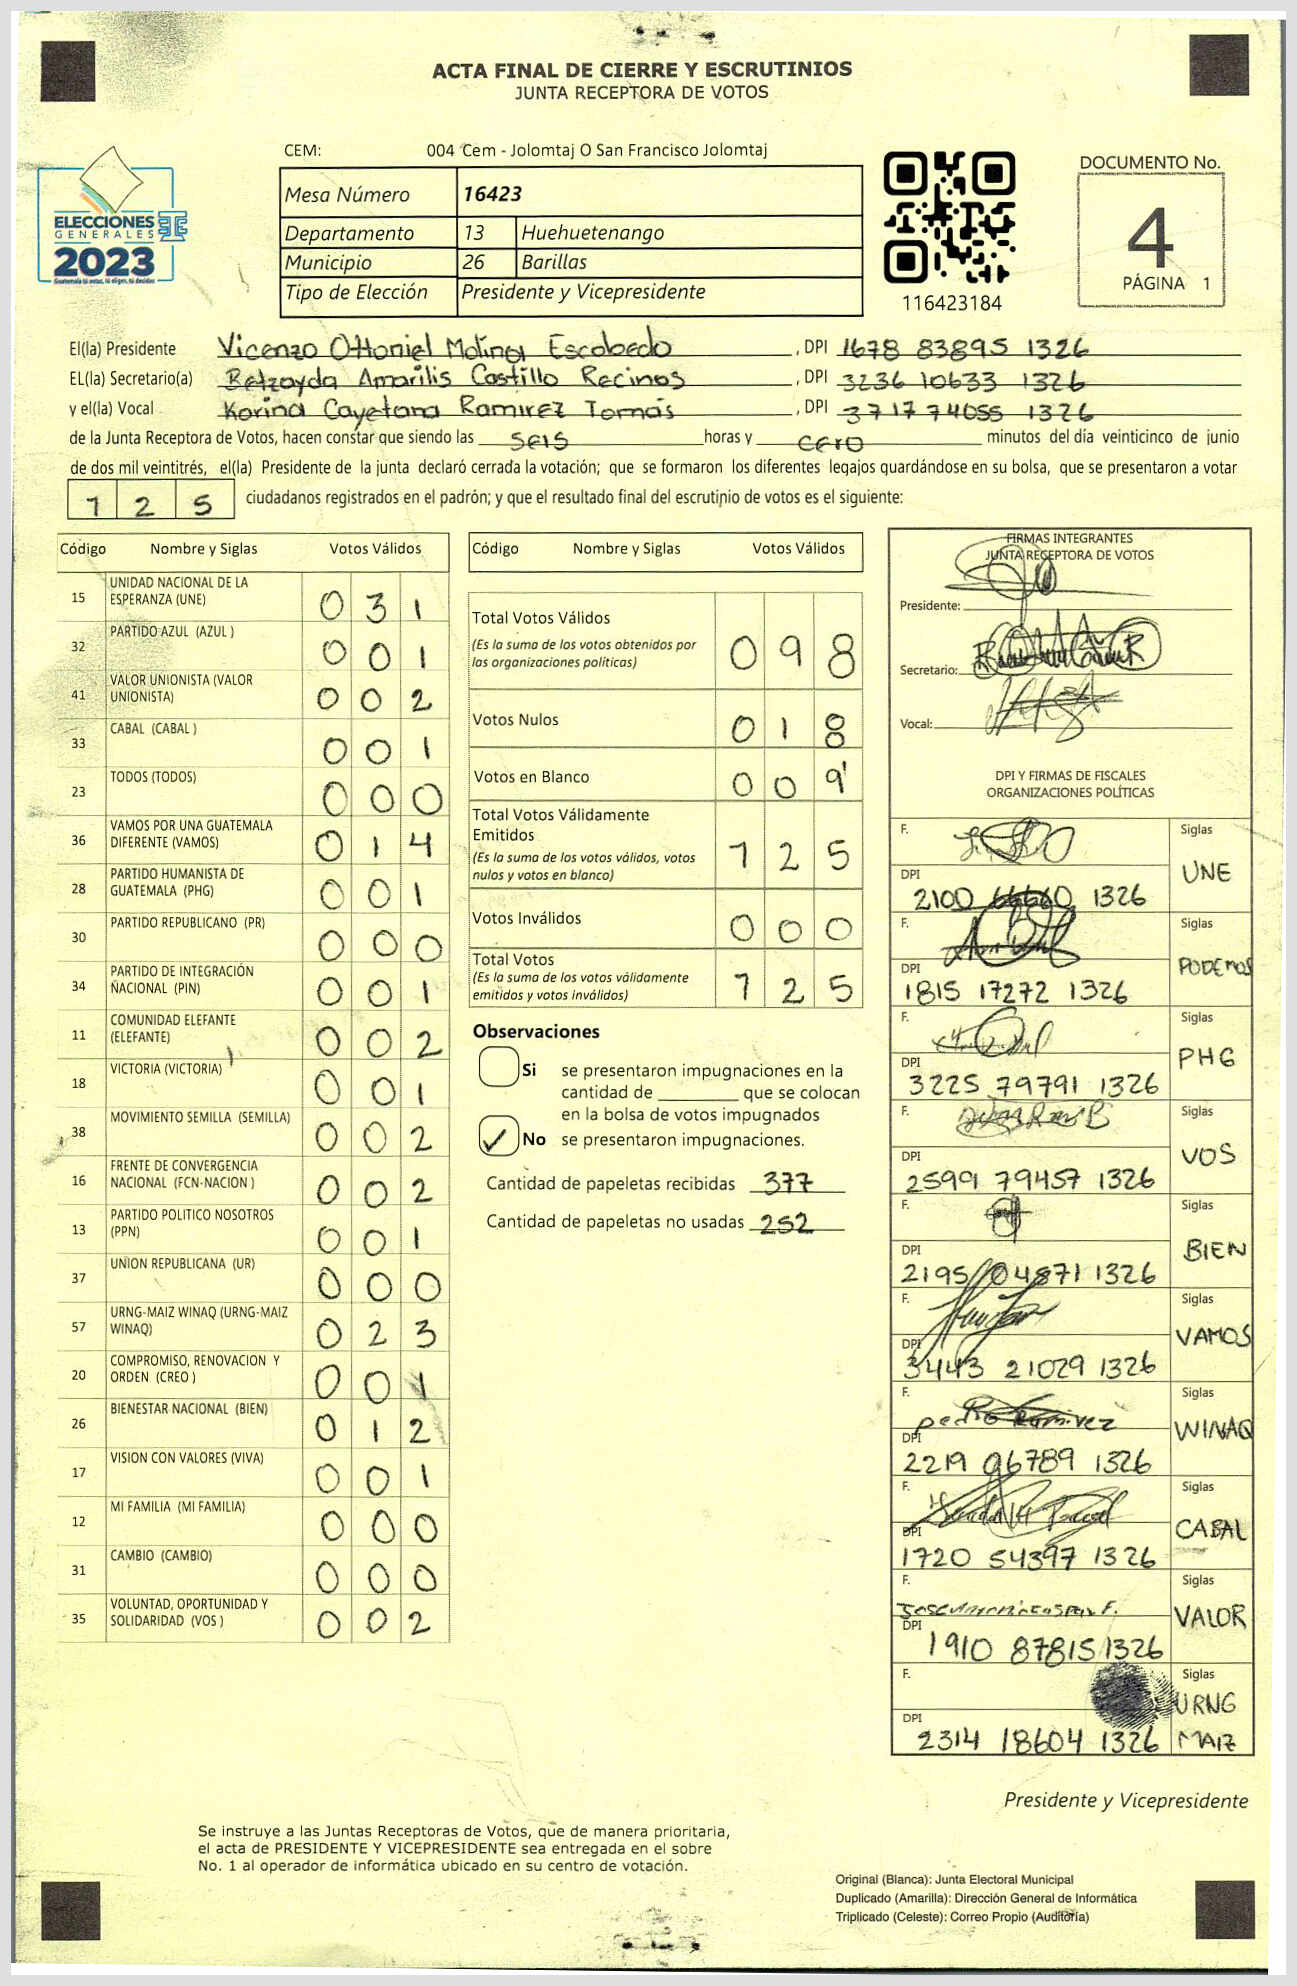 ACTA FINAL DE CIERRE Y ESCRUTINIOS
JUNTA RECEPTORA DE VOTOS
CEM: 004 Cem - Jolomtaj O San Francisco Jolomtaj
DOCUMENTO No.
4
PÁGINA 1
ELECCIONES
GENERALES
2023
Mesa Número 16423
Departamento 13 Huehuetenango
Municipio 26 Barillas
Tipo de Elección Presidente y Vicepresidente
116423184
El(la) Presidente Vicenzo Ottoniel Molina Escobedo, DPI 1678 83895 1326
EL(la) Secretario(a) Betzayda Amarilis Castillo Recinos, DPI 3236 10633 1326
y el(la) Vocal Karina Cayetana Ramirez Tomás, DPI 3717 74055 1326
de la Junta Receptora de Votos, hacen constar que siendo las seis horas y cero minutos del día veinticinco de junio
de dos mil veintitrés, el(la) Presidente de la junta declaró cerrada la votación; que se formaron los diferentes legajos guardándose en su bolsa, que se presentaron a votar
1 2 5 ciudadanos registrados en el padrón; y que el resultado final del escrutinio de votos es el siguiente:
Código Nombre y Siglas Votos Válidos
15 UNIDAD NACIONAL DE LA ESPERANZA (UNE) 0 3 1
32 PARTIDO AZUL (AZUL ) 0 0 1
41 VALOR UNIONISTA (VALOR UNIONISTA) 0 0 2
33 CABAL (CABAL ) 0 0 1
23 TODOS (TODOS) 0 0 0
36 VAMOS POR UNA GUATEMALA DIFERENTE (VAMOS) 0 1 4
28 PARTIDO HUMANISTA DE GUATEMALA (PHG) 0 0 1
30 PARTIDO REPUBLICANO (PR) 0 0 0
34 PARTIDO DE INTEGRACIÓN NACIONAL (PIN) 0 0 1
11 COMUNIDAD ELEFANTE (ELEFANTE) 0 0 2
18 VICTORIA (VICTORIA) 0 0 1
38 MOVIMIENTO SEMILLA (SEMILLA) 0 0 2
16 FRENTE DE CONVERGENCIA NACIONAL (FCN-NACION ) 0 0 2
13 PARTIDO POLITICO NOSOTROS (PPN) 0 0 1
37 UNION REPUBLICANA (UR) 0 0 0
57 URNG-MAIZ WINAQ (URNG-MAIZ WINAQ) 0 2 3
20 COMPROMISO, RENOVACION Y ORDEN (CREO ) 0 0 1
26 BIENESTAR NACIONAL (BIEN) 0 1 2
17 VISION CON VALORES (VIVA) 0 0 1
12 MI FAMILIA (MI FAMILIA) 0 0 0
31 CAMBIO (CAMBIO) 0 0 0
35 VOLUNTAD, OPORTUNIDAD Y SOLIDARIDAD (VOS ) 0 0 2
Código Nombre y Siglas Votos Válidos
Total Votos Válidos 0 9 8
(Es la suma de los votos obtenidos por
las organizaciones políticas)
Votos Nulos 0 1 8
Votos en Blanco 0 0 9
Total Votos Válidamente
Emitidos 1 2 5
(Es la suma de los votos válidos, votos
nulos y votos en blanco)
Votos Inválidos 0 0 0
Total Votos 1 2 5
(Es la suma de los votos válidamente
emitidos y votos inválidos)
Observaciones
Si se presentaron impugnaciones en la
cantidad de ________ que se colocan
en la bolsa de votos impugnados
No se presentaron impugnaciones.
Cantidad de papeletas recibidas 377
Cantidad de papeletas no usadas 252
FIRMAS INTEGRANTES
JUNTA RECEPTORA DE VOTOS
Presidente:
Secretario:
Vocal:
DPI Y FIRMAS DE FISCALES
ORGANIZACIONES POLÍTICAS
F. Siglas
UNE
DPI 2100 66660 1326
F. Siglas
PODEMOS
DPI 1815 17272 1326
F. Siglas
PHG
DPI 3225 79791 1326
F. Siglas
VOS
DPI 2599 79457 1326
F. Siglas
BIEN
DPI 2195 04871 1326
F. Siglas
VAMOS
DPI 3443 21029 1326
F. Pedro Ramirez Siglas
WINAQ
DPI 2219 96789 1326
F. Siglas
CABAL
DPI 1720 54397 1326
F. Siglas
VALOR
DPI 1910 87815 1326
F. Siglas
URNG
DPI 2314 18604 1326 MAIZ
Presidente y Vicepresidente
Se instruye a las Juntas Receptoras de Votos, que de manera prioritaria,
el acta de PRESIDENTE Y VICEPRESIDENTE sea entregada en el sobre
No. 1 al operador de informática ubicado en su centro de votación.
Original (Blanca): Junta Electoral Municipal
Duplicado (Amarilla): Dirección General de Informática
Triplicado (Celeste): Correo Propio (Auditoría)